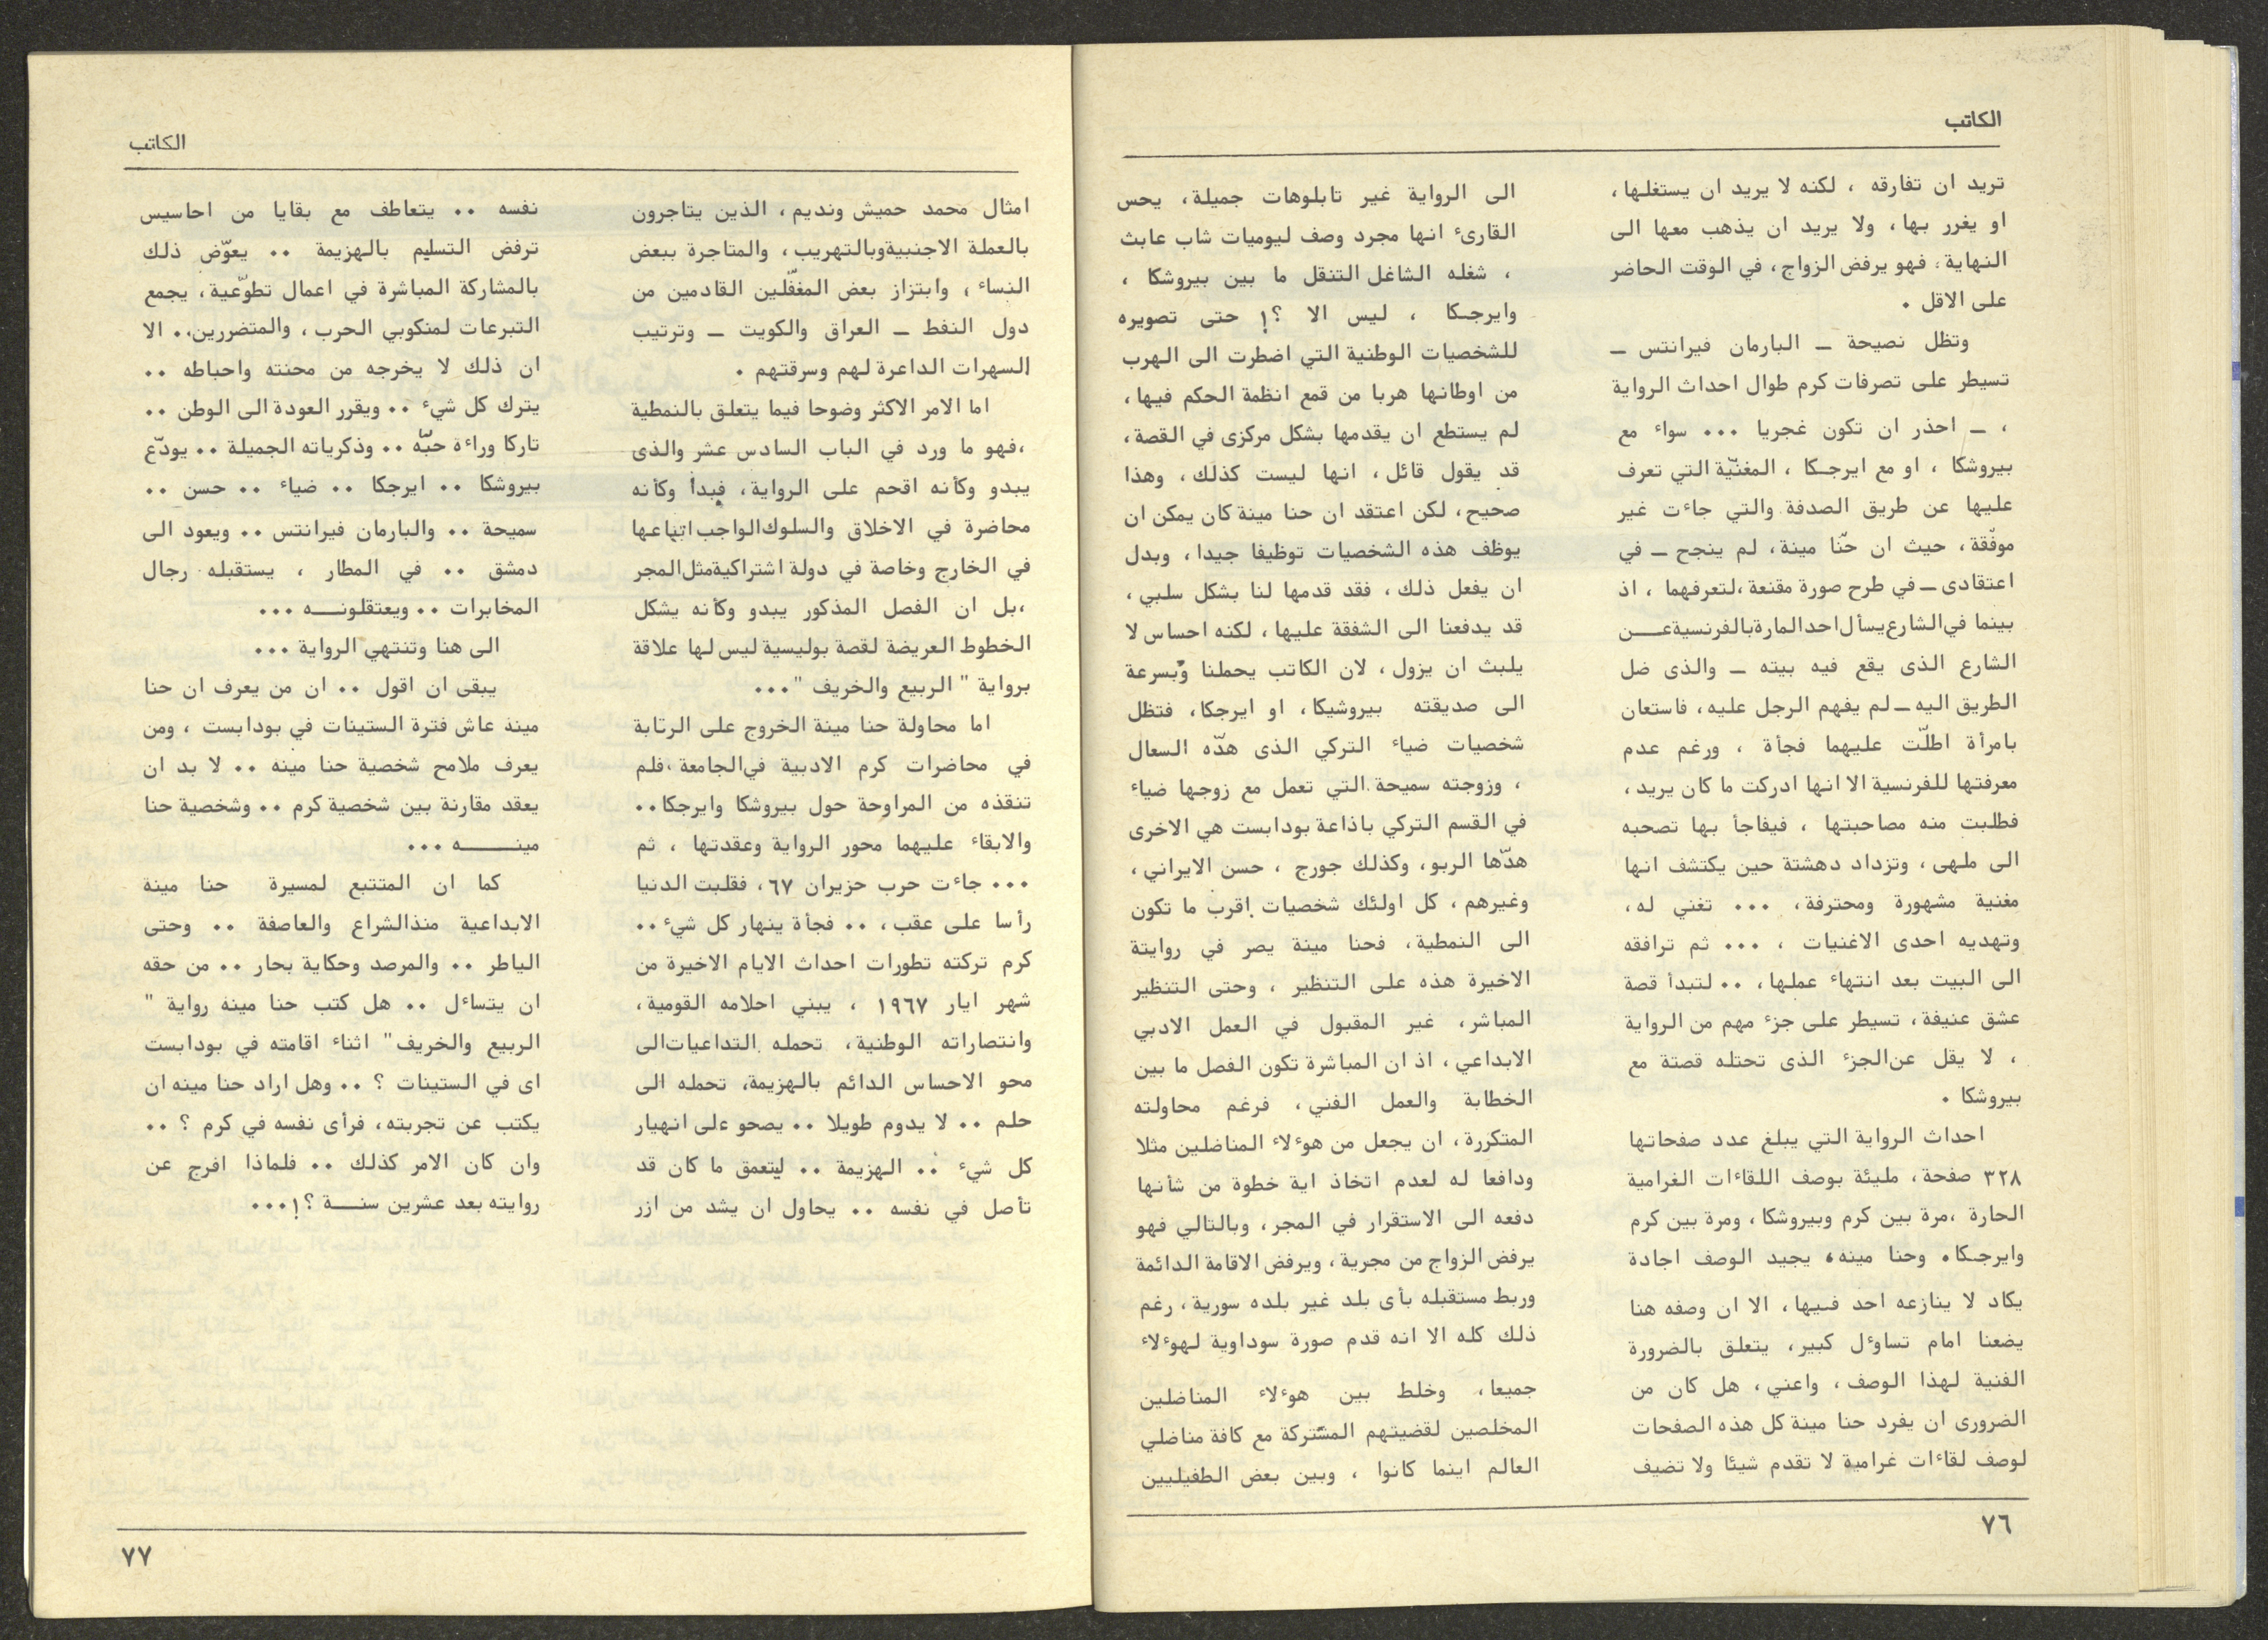 الكاتب
تريد ان تفارقه ، لكنه لا يريد ان يستغلها،
او يغرر بها، ولا يريد ان يذهب معها الى
النهاية، فهو يرفض الزواج، في الوقت الحاضر
على الاقل .
وتظل نصيحة ــ البارمان فيرانتس ــ
تسيطر على تصرفات كرم طوال احداث الرواية
، ــ احذر ان تكون غجريا ... سواء مع
بيروشكا ، او مع ايرجـكا ، المغنّية التي تعرف
عليها عن طريق الصدفة والتي جاءت غير
موفّقة، حيث ان حنّا مينة، لم ينجح ــ في
اعتقادى ــ في طرح صورة مقنعة،لتعرفهما ، اذ
بينما في الشارع يسأل احد المارة بالفرنسية عـــن
الشارع الذى يقع فيه بيته ــ والذى ضل
الطريق اليه ــ لم يفهم الرجل عليه، فاستعان
بامرأة اطلّت عليهما فجأة ، ورغم عدم
معرفتها للفرنسية الا انها ادركت ما كان يريد،
فطلبت منه مصاحبتها ، فيفاجأ بها تصحبه
الى ملهى، وتزداد دهشتة حين يكتشف انها
مغنية مشهورة ومحترفة، ... تغني له،
وتهديه احدى الاغنيات ، ... ثم ترافقه
الى البيت بعد انتهاء عملها، .. لتبدأ قصة
عشق عنيفة، تسيطر على جزء مهم من الرواية
، لا يقل عن الجزء الذى تحتله قصتة مع
بيروشكا .
احداث الرواية التي يبلغ عدد صفحاتها
٣٢٨ صفحة، مليئة بوصف اللقاءات الغرامية
الحارة ،مرة بين كرم وبيروشكا، ومرة بين كرم
وايرجـكا. وحنا مينه، يجيد الوصف اجادة
يكاد لا ينازعه احد فيها، الا ان وصفه هنا
يضعنا امام تساؤل كبير، يتعلق بالضرورة
الفنية لهذا الوصف، واعني، هل كان من
الضرورى ان يفرد حنا مينة كل هذه الصفحات
لوصف لقاءات غرامية لا تقدم شيئا ولا تضيف
الى الرواية غير تابلوهات جميلة، يحس
القارىء انها مجرد وصف ليوميات شاب عابث
، شغله الشاغل التنقل ما بين بيروشكا ،
وايرجـكا ، ليس الا ؟! حتى تصويره
للشخصيات الوطنية التي اضطرت الى الهرب
من اوطانها هربا من قمع انظمة الحكم فيها،
لم يستطع ان يقدمها بشكل مركزى في القصة،
قد يقول قائل، انها ليست كذلك، وهذا
صحيح، لكن اعتقد ان حنا مينة كان يمكن ان
يوظف هذه الشخصيات توظيفا جيدا، وبدل
ان يفعل ذلك، فقد قدمها لنا بشكل سلبي،
قد يدفعنا الى الشفقة عليها، لكنه احساس لا
يلبث ان يزول، لان الكاتب يحملنا وبسرعة
الى صديقته بيروشيكا، او ايرجكا، فتظل
شخصيات ضياء التركي الذى هدّه السعال
، وزوجته سميحة التي تعمل مع زوجها ضياء
في القسم التركي باذاعة بودابست هي الاخرى
هدّها الربو، وكذلك جورج ، حسن الايراني،
وغيرهم، كل اولئك شخصيات اقرب ما تكون
الى النمطية، فحنا مينة يصر في روايتة
الاخيرة هذه على التنظير ، وحتى التنظير
المباشر، غير المقبول في العمل الادبي
الابداعي، اذ ان المباشرة تكون الفصل ما بين
الخطابة والعمل الفني، فرغم محاولته
المتكررة، ان يجعل من هوءلاء المناضلين مثلا
ودافعا له لعدم اتخاذ اية خطوة من شأنها
دفعه الى الاستقرار في المجر، وبالتالي فهو
يرفض الزواج من مجرية، ويرفض الاقامة الدائمة
وربط مستقبله بأى بلد غير بلده سورية، رغم
ذلك كله الا انه قدم صورة سوداوية لهوءلاء
جميعا، وخلط بين هوءلاء المناضلين
المخلصين لقضيتهم المشتركة مع كافة مناضلي
العالم اينما كانوا ، وبين بعض الطفيليين
٧٦
الكاتب
امثال محمد حميش ونديم، الذين يتاجرون
بالعملة الاجنبية وبالتهريب، والمتاجرة ببعض
النساء ، وابتزاز بعض المغفّلين القادمين من
دول النفط ــ العراق والكويت ــ وترتيب
السهرات الداعرة لهم وسرقتهم .
اما الامر الاكثر وضوحا فيما يتعلق بالنمطية
،فهو ما ورد في الباب السادس عشر والذى
يبدو وكأنه اقحم على الرواية، فبدأ وكأنه
محاضرة في الاخلاق والسلوك الواجب اتباعها
في الخارج وخاصة في دولة اشتراكية مثل المجر
،بل ان الفصل المذكور يبدو وكأنه يشكل
الخطوط العريضة لقصة بوليسية ليس لها علاقة
برواية " الربيع والخريف "...
اما محاولة حنا مينة الخروج على الرتابة
في محاضرات كرم الادبية في الجامعة ،فلم
تنقذه من المراوحة حول بيروشكا وايرجكا..
والابقاء عليهما محور الرواية وعقدتها ، ثم
... جاءت حرب حزيران ٦٧، فقلبت الدنيا
رأسا على عقب، .. فجأة ينهار كل شيء ..
كرم تركته تطورات احداث الايام الاخيرة من
شهر ايار ١٩٦٧ ، يبني احلامه القومية،
وانتصاراته الوطنية، تحمله التداعيات الى
محو الاحساس الدائم بالهزيمة، تحمله الى
حلم .. لا يدوم طويلا .. يصحو على انهيار
كل شيء .. الهزيمة .. ليتعمق ما كان قد
تأصل في نفسه .. يحاول ان يشد من ازر
نفسه .. يتعاطف مع بقايا من احاسيس
ترفض التسليم بالهزيمة .. يعوّض ذلك
بالمشاركة المباشرة في اعمال تطوّعية، يجمع
التبرعات لمنكوبي الحرب، والمتضررين.. الا
ان ذلك لا يخرجه من محنته واحباطه ..
يترك كل شيء .. ويقرر العودة الى الوطن ..
تاركا وراءة حبّه .. وذكرياته الجميلة .. يودّع
بيروشكا .. ايرجكا .. ضياء .. حسن ..
سميحة .. والبارمان فيرانتس .. ويعود الى
دمشق .. في المطار ، يستقبله رجال
المخابرات .. ويعتقلونـــه ...
الى هنا وتنتهي الرواية ...
يبقى ان اقول .. ان من يعرف ان حنا
مينة عاش فترة الستينات في بودابست ، ومن
يعرف ملامح شخصية حنا مينه .. لا بد ان
يعقد مقارنة بين شخصية كرم .. وشخصية حنا
مينـــــه ...
كما ان المتتبع لمسيرة حنا مينة
الابداعية منذ الشراع والعاصفة .. وحتى
الياطر .. والمرصد وحكاية بحار .. من حقه
ان يتساءل .. هل كتب حنا مينه رواية "
الربيع والخريف" اثناء اقامته في بودابست
اى في الستينات ؟ .. وهل اراد حنا مينه ان
يكتب عن تجربته، فرأى نفسه في كرم ؟ ..
وان كان الامر كذلك .. فلماذا افرج عن
روايته بعد عشرين سنـــة ؟!...
٧٧